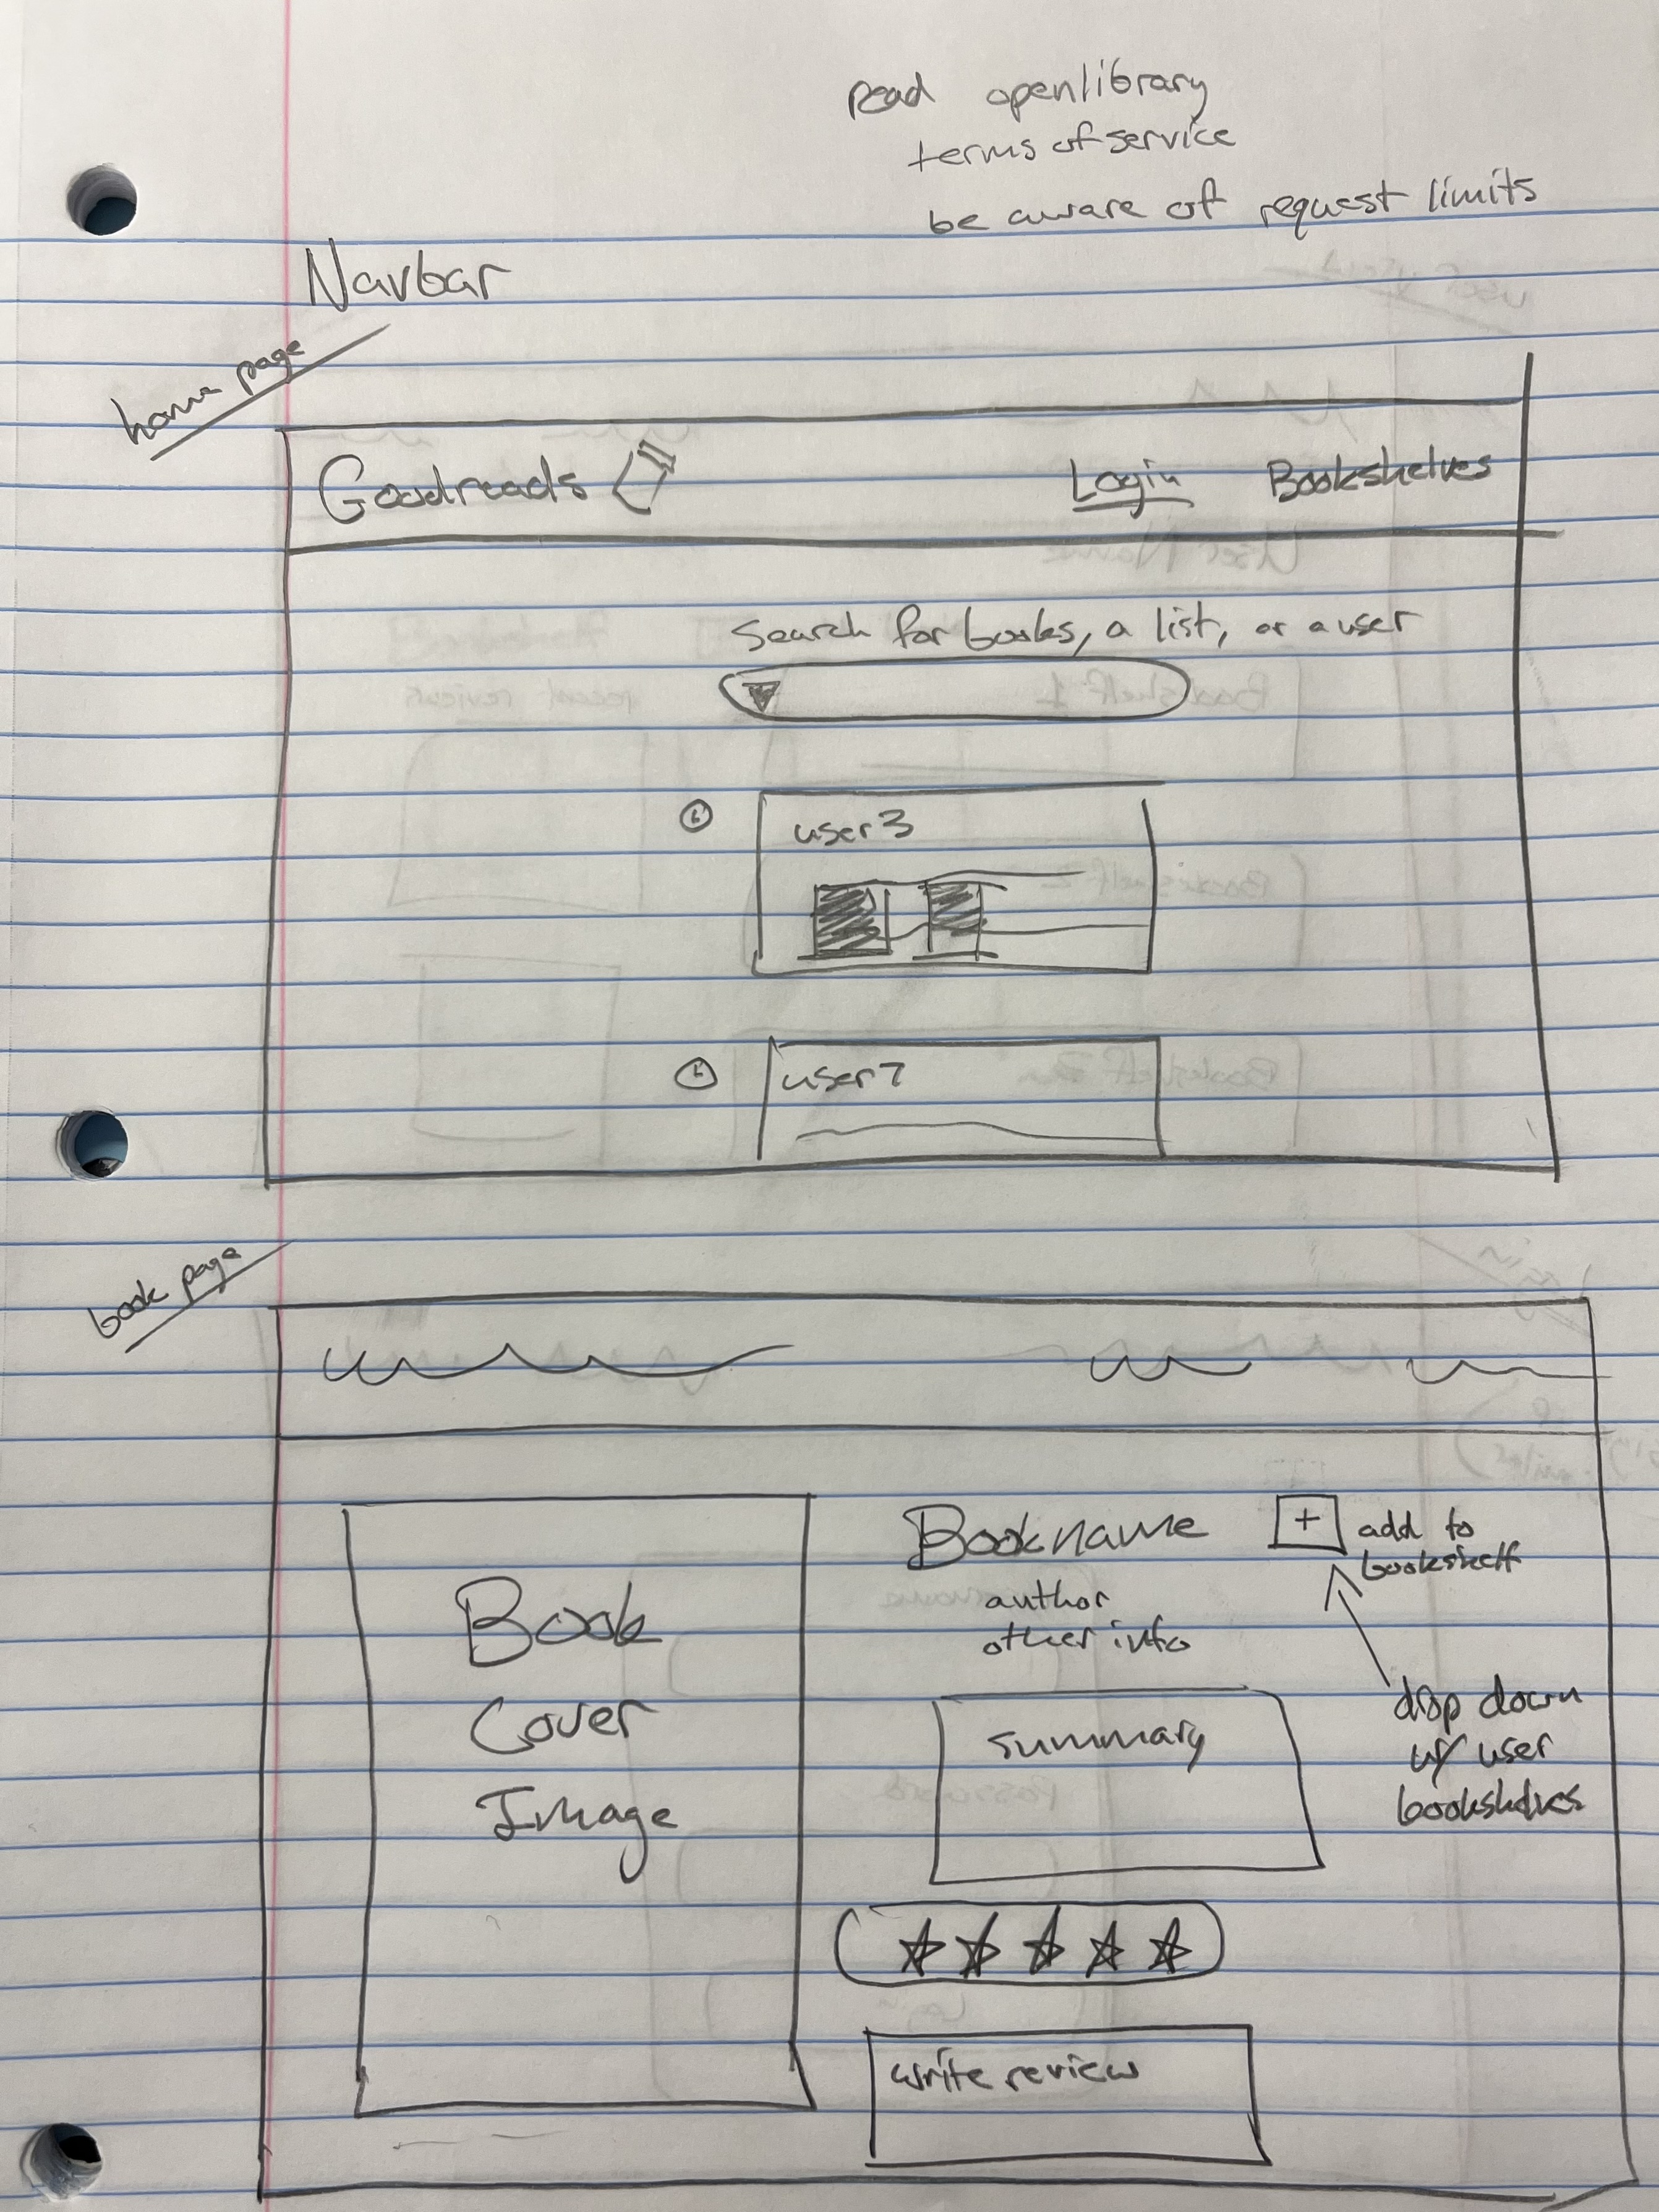 read openlibrary
terms of service
be aware of request limits
Navbar
home page
Goodreads
Login Bookshelves
Search for books, a list, or a user
user 3
user 7
book page
Bookname
+ add to
bookshelf
author
other info
Book
Cover
Image
summary
drop down
w/ user
bookshelves
write review